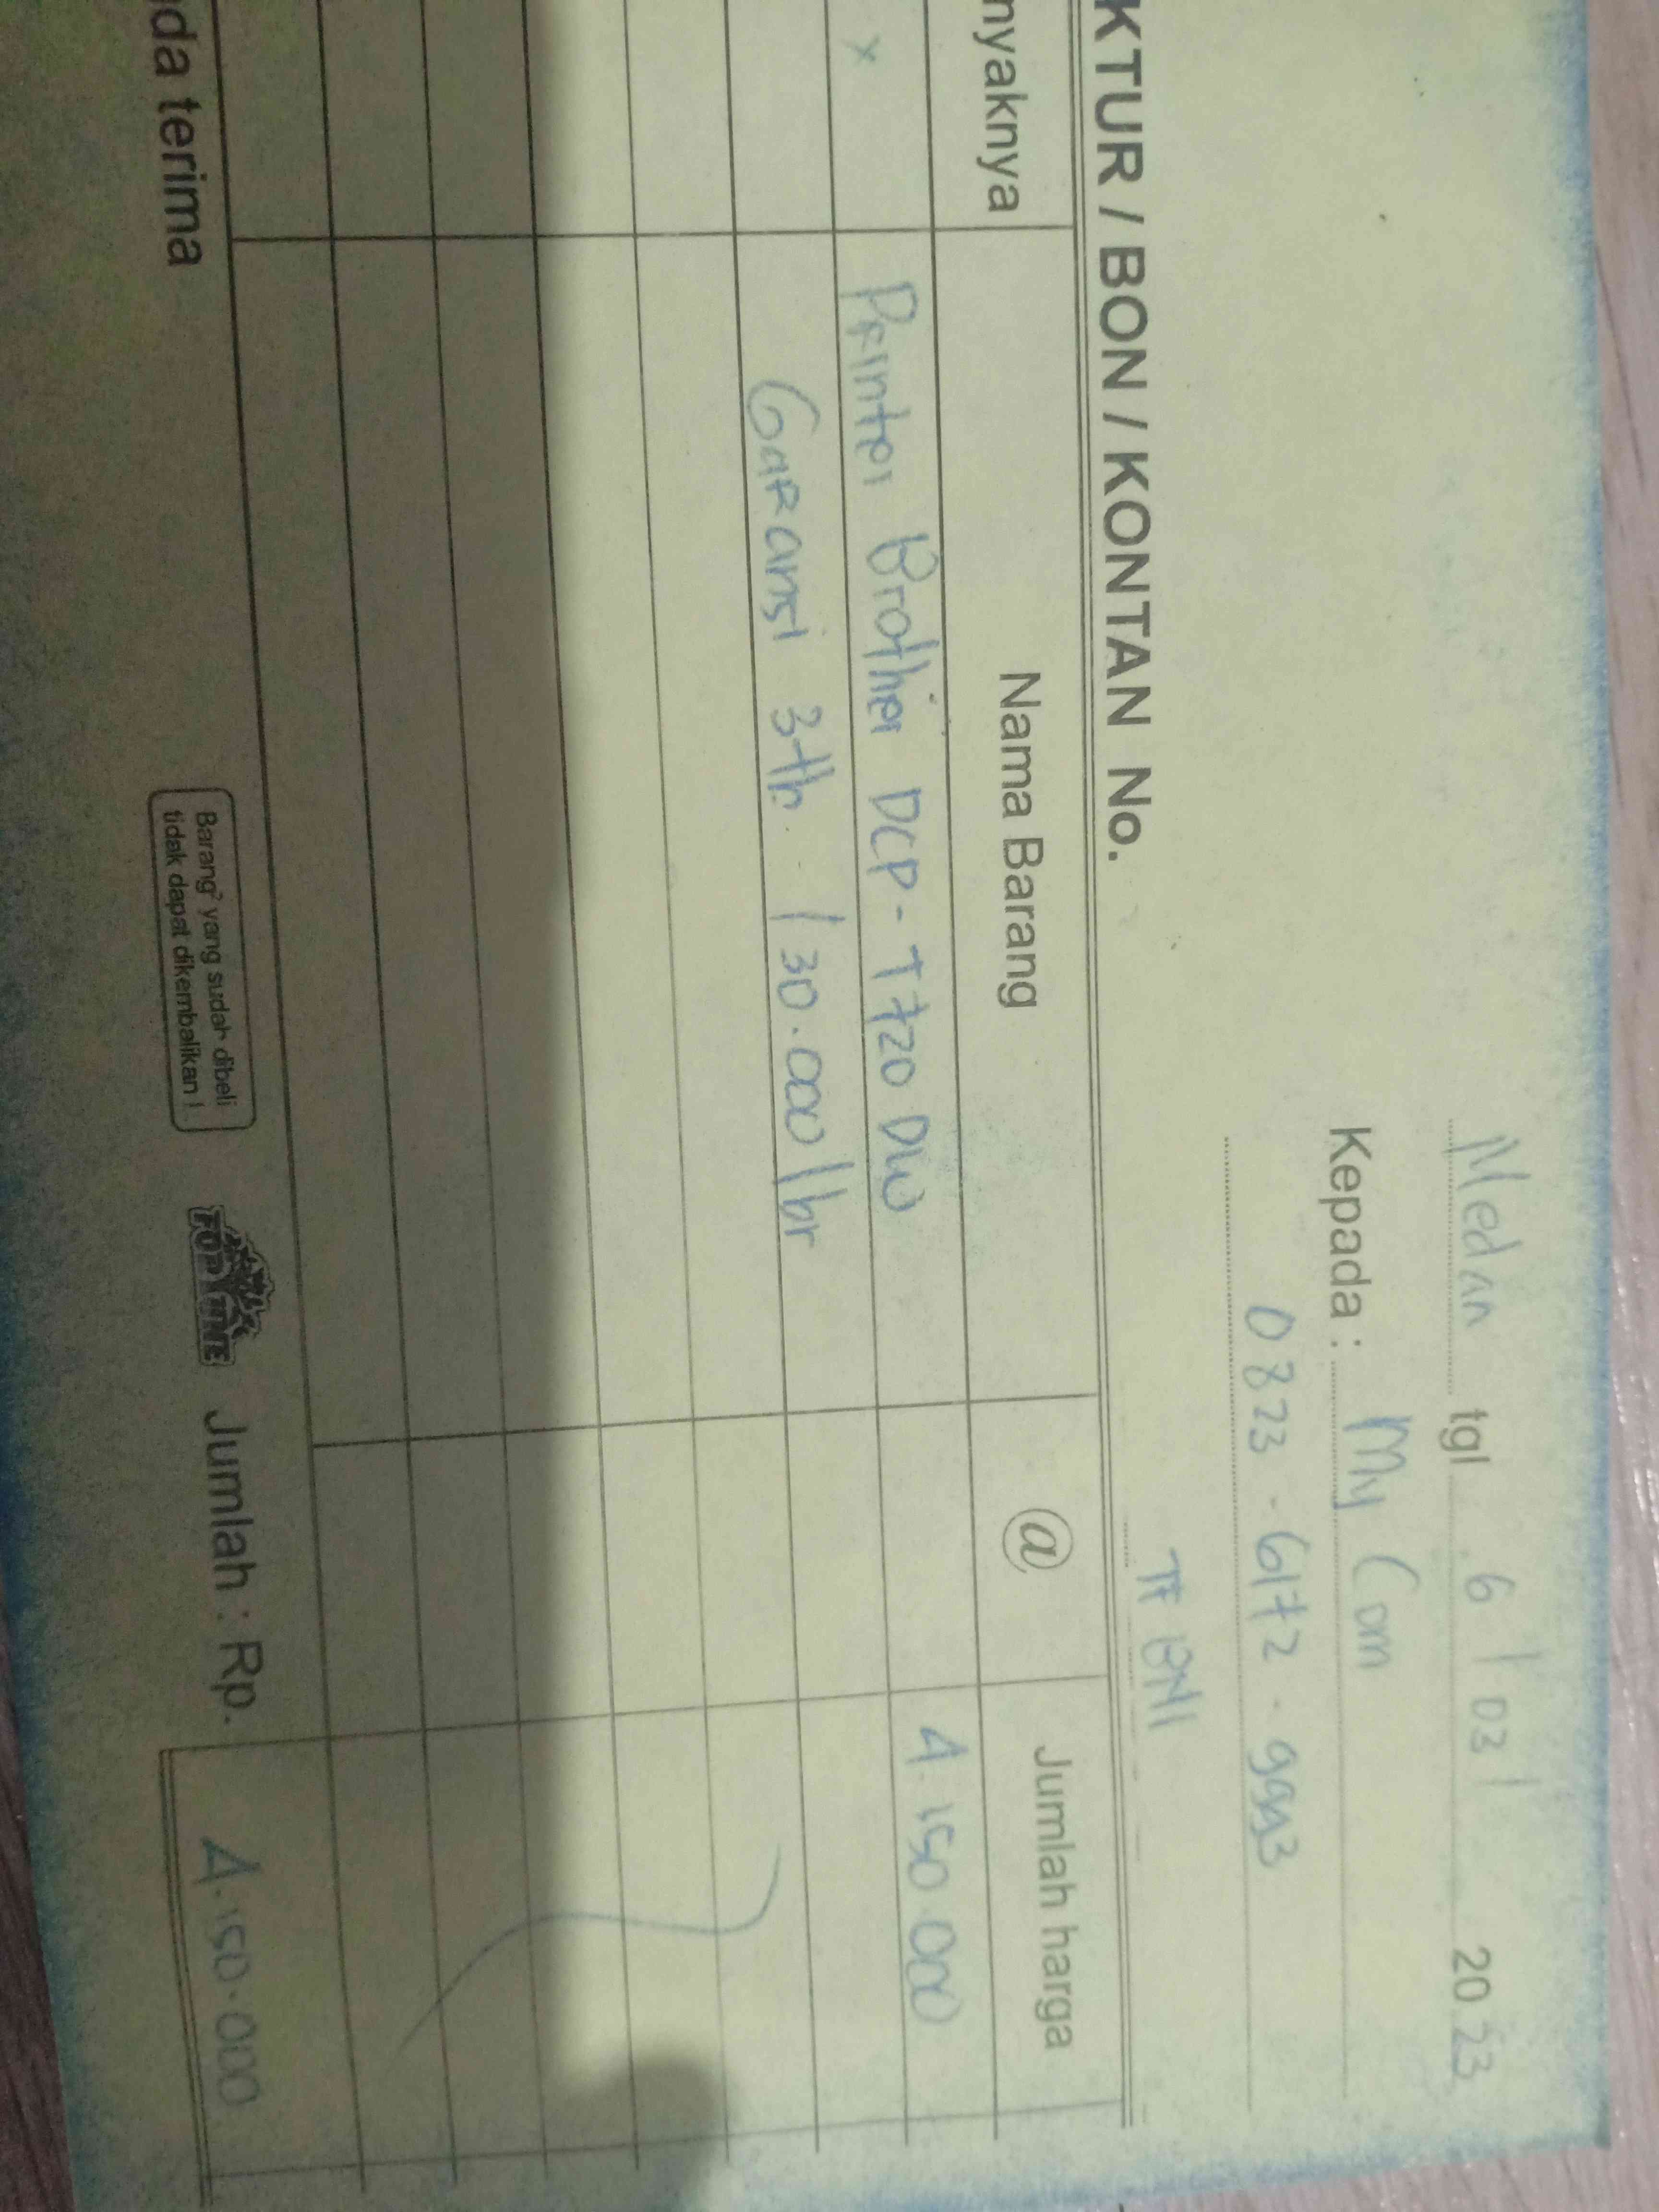 Medan tgl 6/03/ 2023
Kepada : My Com
0823-6172-9993
TF BNI
KTUR / BON / KONTAN No.
nyaknya Nama Barang @ Jumlah harga
x Printer Brother DCP-T720 DW 4.150.000
Garansi 3th / 30.000 lbr
da terima
Barang² yang sudah dibeli
tidak dapat dikembalikan !
Jumlah : Rp. 4.150.000